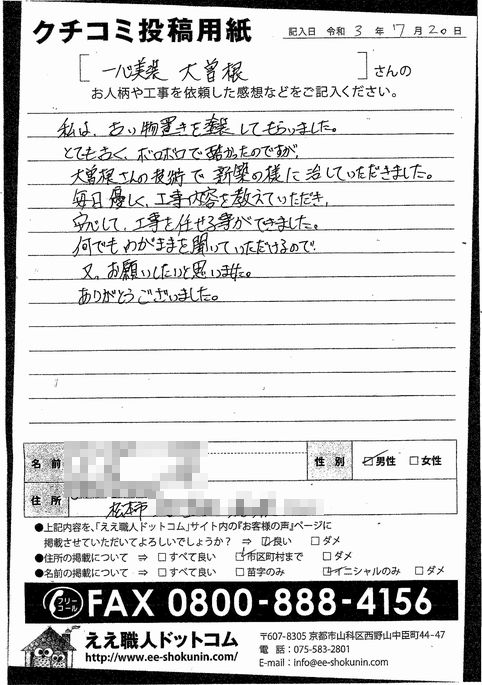 クチコミ投稿用紙
記入日 令和 3 年 7 月 20 日
[一心美装 大曽根]さんの
お人柄や工事を依頼した感想などをご記入ください。
私は、古い物置きを塗装してもらいました。
とても古く、ボロボロで酷かったのですが、
大曽根さんの技術で新築の様に治していただきました。
毎日優しく、工事内容を教えていただき、
安心して、工事を任せる事ができました。
何でもわがままを聞いていただけるので、
又、お願いしたいと思いました。
ありがとうございました。
名前
性別 ☑男性 □女性
住所
松本市
●上記内容を、「ええ職人ドットコム」サイト内の『お客様の声』ページに
掲載させていただいてよろしいでしょうか? ⇒ ☑良い □ダメ
●住所の掲載について ⇒ □すべて良い ☑市区町村まで □ダメ
●名前の掲載について ⇒ □すべて良い □苗字のみ ☑イニシャルのみ □ダメ
フリーコール FAX 0800-888-4156
ええ職人ドットコム
http://www.ee-shokunin.com/
〒607-8305 京都市山科区西野山中臣町44-47
電話:075-583-2801
E-mail:info@ee-shokunin.com